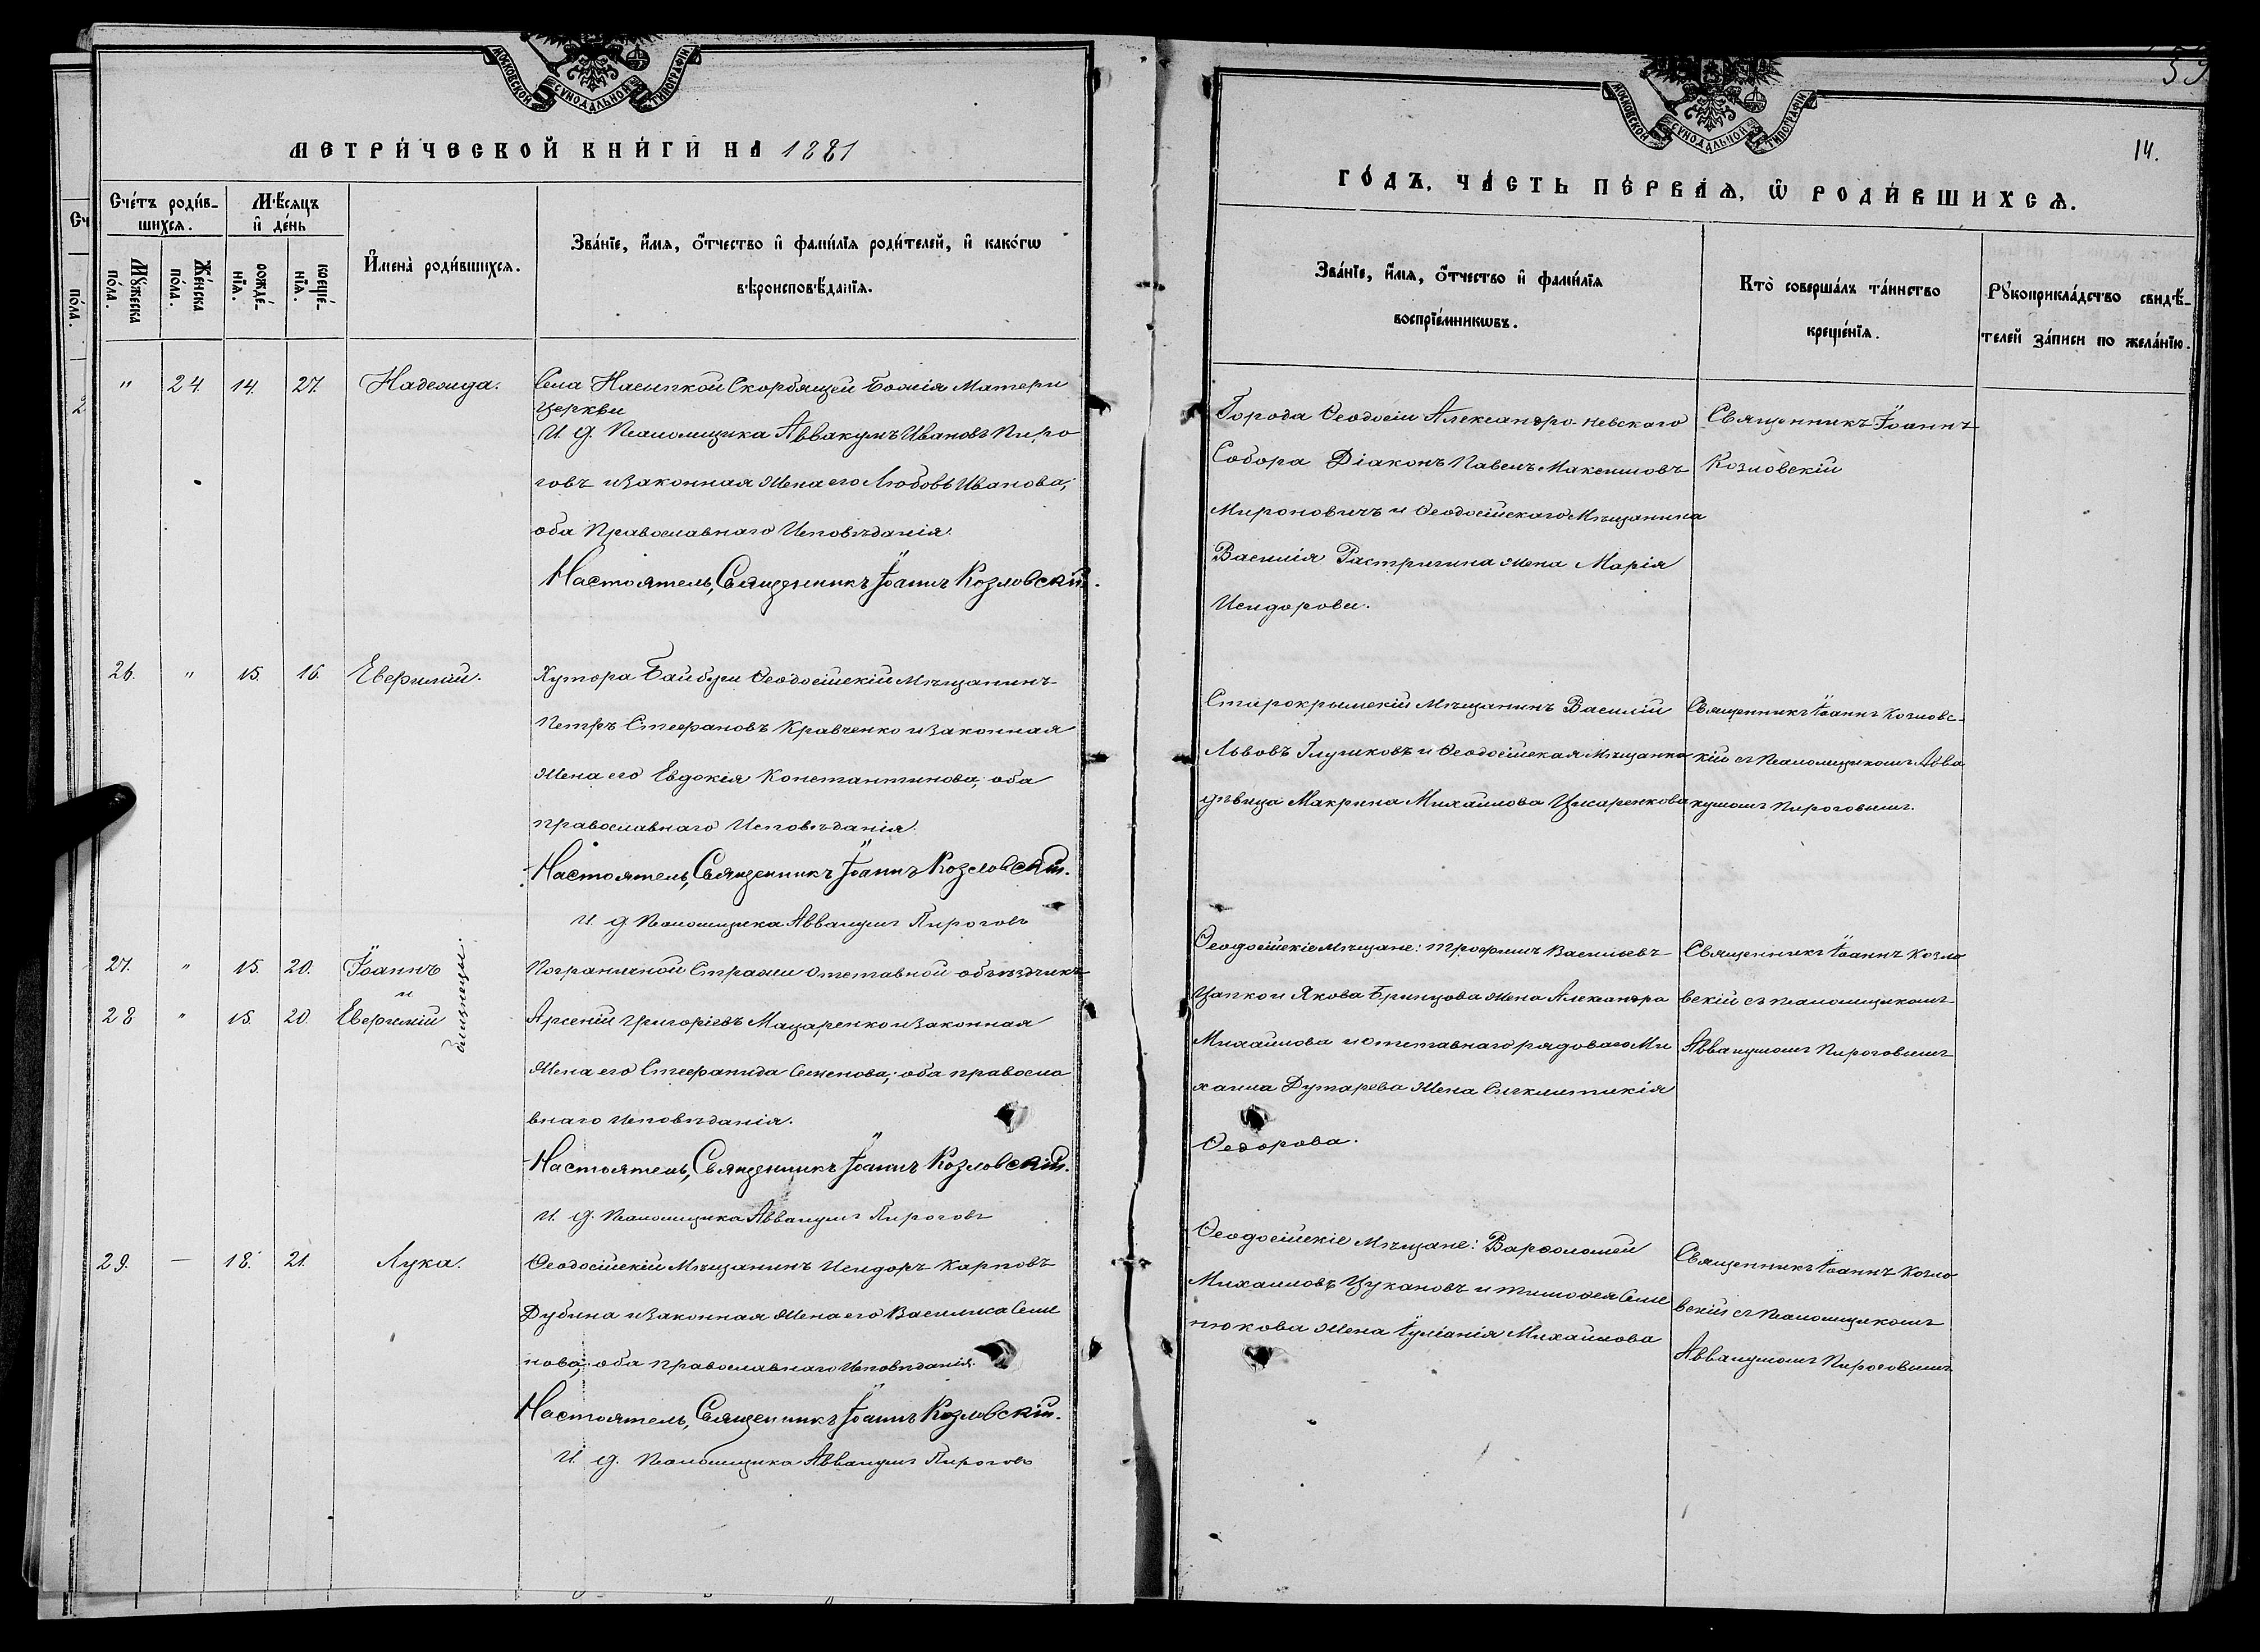 МОСКОВСКОЙ СѴНОДАЛЬНОЙ ТИПОГРАФІИ
МЕТРИ́ЧЕСКОЙ КНИ́ГИ НА 1881
Сче́тъ роди́в-
шихся.
Мѣ́сяцъ
и҆ де́нь
Мꙋ́жеска по́ла.
Же́нска по́ла.
рожде́-нїя.
креще́-нїя.
И҆мена̀ роди́вшихся.
Зва́нїе, и҆́мя, ѻ҆́тчество и҆ фами́лїя роди́телей, и҆ како́гѡ
вѣроисповѣ́данїя.
" 24. 14. 27. Надежда.
Села Насыпкой Скорбящей Божія Матери
церкви
И. д. Псаломщика Аввакумъ Ивановъ Пиро
говъ и законная жена его Любовь Иванова,
оба Православнаго Исповѣданія.
Настоятель, Священникъ Іоаннъ Козловскій.
26. " 15. 16. Евергилій.
Хутора Байбуги Ѳеодосійскій Мѣщанинъ
Петръ Стефановъ Кравченко и законная
жена его Евдокія Константинова, оба
православнаго Исповѣданія.
Настоятель, Священникъ Іоаннъ Козловскій.
И. д. Псаломщика Аввакумъ Пироговъ
27. " 15. 20. Іоаннъ
и
28 " 15. 20. Евергилій
близнецы.
Пограничной Стражи отставной объѣздчикъ
Арсеній Григоріевъ Мацаренко и законная
жена его Стефанида Семенова, оба правосла
внаго исповѣданія.
Настоятель, Священникъ Іоаннъ Козловскій.
И. д. Псаломщика Аввакумъ Пироговъ
29. — 18. 21. Лука.
Ѳеодосійскій Мѣщанинъ Исидоръ Карповъ
Дубина и законная жена его Василиса Семе
нова, оба православнаго Исповѣданія.
Настоятель, Священникъ Іоаннъ Козловскій.
И. д. Псаломщика Аввакумъ Пироговъ
59
МОСКОВСКОЙ СѴНОДАЛЬНОЙ ТИПОГРАФІИ
14.
ГО́ДЪ, ЧА́СТЬ ПЕ́РВАЯ, Ѡ҆ РОДИ́ВШИХСЯ.
Зва́нїе, и҆́мя, ѻ҆́тчество и҆ фами́лїя
воспрїе́мникѡвъ.
Кто̀ соверша́лъ та́инство
креще́нїя.
Рꙋкоприкла́дство свидѣ́-
телей за́писи по жела́нїю.
Города Ѳеодосіи Александро-Невскаго
Собора Діаконъ Павелъ Максимовъ
Мироновичъ и Ѳеодосійскаго Мѣщанина
Василія Растригина жена Марія
Исидорова.
Священникъ Іоаннъ
Козловскій
Старокрымскій Мѣщанинъ Василій
Львовъ Глушковъ и Ѳеодосійская Мѣщанка
дѣвица Макрина Михайлова Цисаренкова
Священникъ Іоаннъ Козловс-
кій съ Псаломщикомъ Авва
кумомъ Пироговымъ.
Ѳеодосійскіе Мѣщане: Трофимъ Васильевъ
Цапко и Якова Бринцова жена Александра
Михайлова и отставнаго рядоваго Ми
хаила Дутарева жена Синклитикія
Ѳедорова.
Священникъ Іоаннъ Козло
вскій съ псаломщикомъ
Аввакумомъ Пироговымъ
Ѳеодосійскіе Мѣщане: Варѳоломей
Михаиловъ Цукановъ и Тимоѳея Семе
нюкова жена Іуліанія Михайлова
Священникъ Іоаннъ Козло
вскій съ Псаломщикомъ
Аввакумомъ Пироговымъ